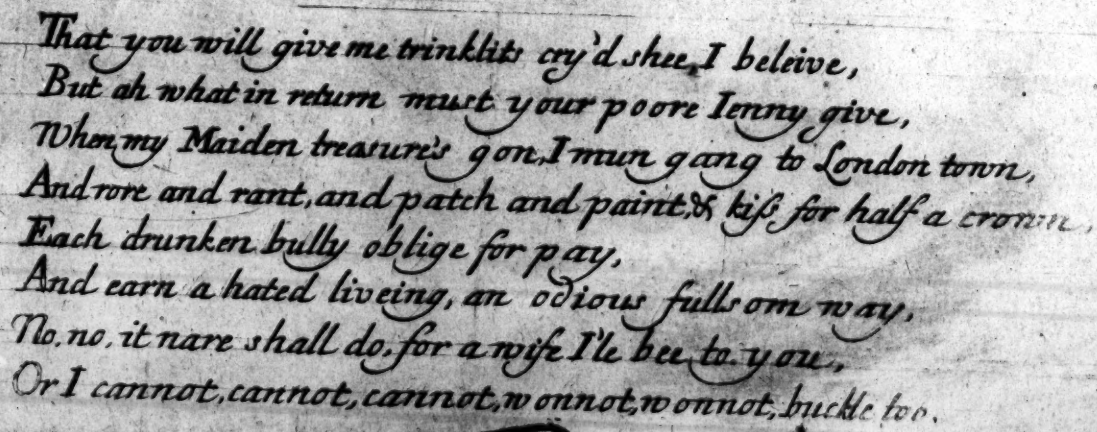 That you will give me trinklits cry'd shee, I beleive,
But ah what in return must your poore Ienny give,
When my Maiden treasure's gon, I mun gang to London town,
And rore and rant, and patch and paint, & kiß for half a crown,
Each drunken bully oblige for pay,
And earn a hated liveing, an odious fullsom way,
No, no, it nare shall do, for a wife I'le bee to you,
Or I cannot, cannot, cannot, wonnot, wonnot, buckle too.